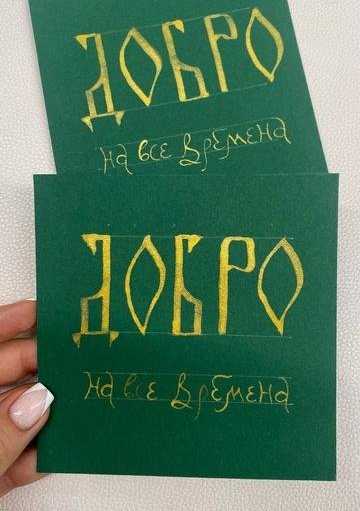 ДОБРО
на все времена
ДОБРО
на все времена